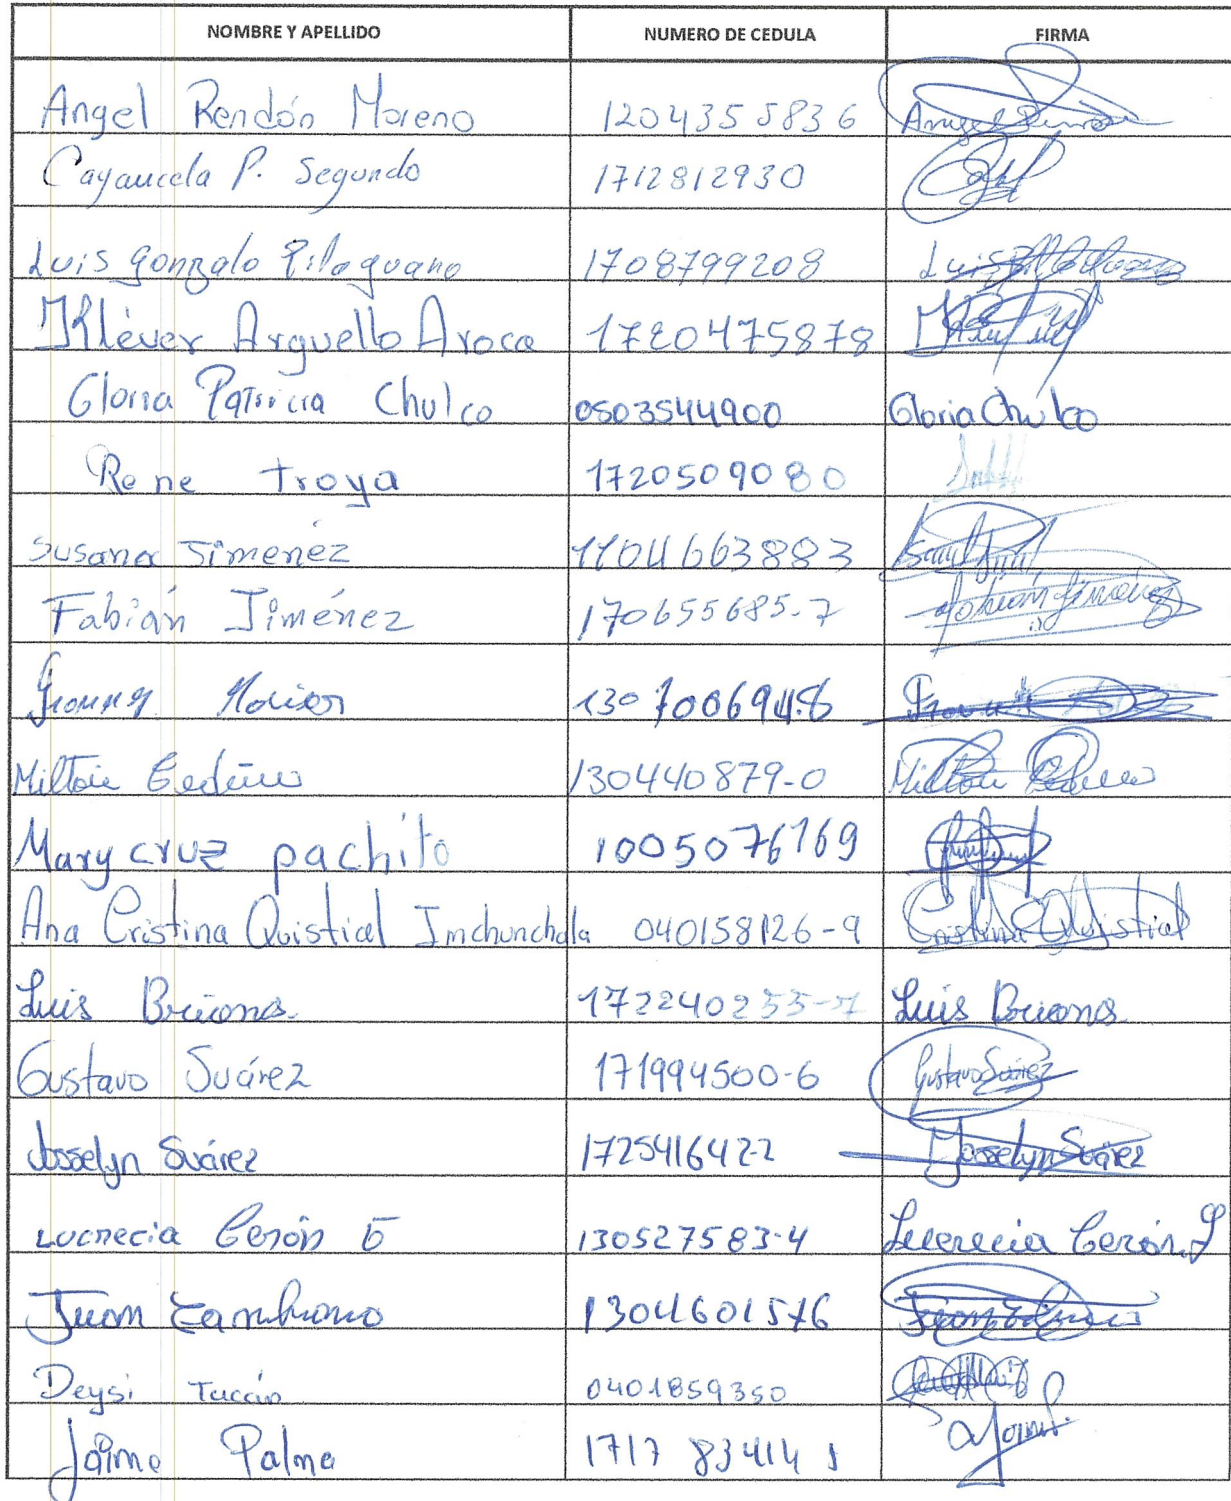 NOMBRE Y APELLIDO NUMERO DE CEDULA FIRMA
Angel Rendón Moreno 1204355836
Cayancela P. Segundo 1712812930
Luis Gonzalo Pilaguano 1708799208
Kléver Arguello Aroca 1720475878
Gloria Patricia Chulco 0503544900 Gloria Chulco
Rene troya 1720509080
Susana Jimenez 1104663883
Fabián Jiménez 170655685-7 Fabián Jiménez
130700694-8
Milton Cedeño 130440879-0 Milton Cedeño
Mary cruz pachito 1005076769
Ana Cristina Quistial Imchunchala 040158126-9 Cristina Quistial
Luis Briones 172240255-7 Luis Briones
Gustavo Suárez 171994500-6 Gustavo Suárez
Josselyn Suárez 172541642-2 Josselyn Suárez
Lucrecia Cerón 130527583-4 Lucrecia Cerón
Juan Zambrano 1304601576
Deysi 0401859350
Jaime Palma 1717834141